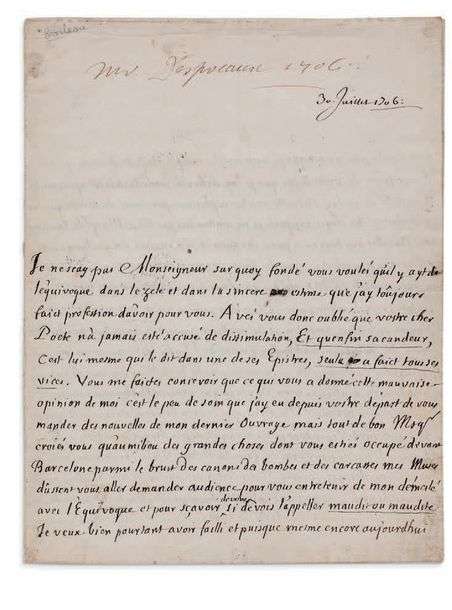 Boileau
Mr Despreaux 1706.
30 Juillet 1706.
Je ne sçay pas Monseigneur sur quoy fondé vous voulés qu'il y ayt de
l'équivoque dans le zele et dans la sincere estime que j'ay toujours
faict profession d'avoir pour vous. Avés vous donc oublié que vostre cher
Poete n'a jamais esté accusé de dissimulation, Et qu'enfin sa candeur,
c'est lui mesme qui le dit dans une de ses Epistres, seule a faict tous ses
vices. Vous me faictes concevoir que ce qui vous a donné cette mauvaise
opinion de moi c'est le peu de soin que j'ay eu depuis vostre depart de vous
mander des nouvelles de mon dernier Ouvrage mais tout de bon Msgr
croiés vous qu'au milieu des grandes choses dont vous estiés occupé devant
Barcelone parmi le bruit des canons des bombes et des carcasses mes Muses
dussent vous aller demander audience pour vous entretenir de mon démélé
avec l'Equivoque et pour sçavoir de vous si je devois l'appeller maudit ou maudite.
Je veux bien pourtant avoir failli et puisque mesme encore aujourdhui